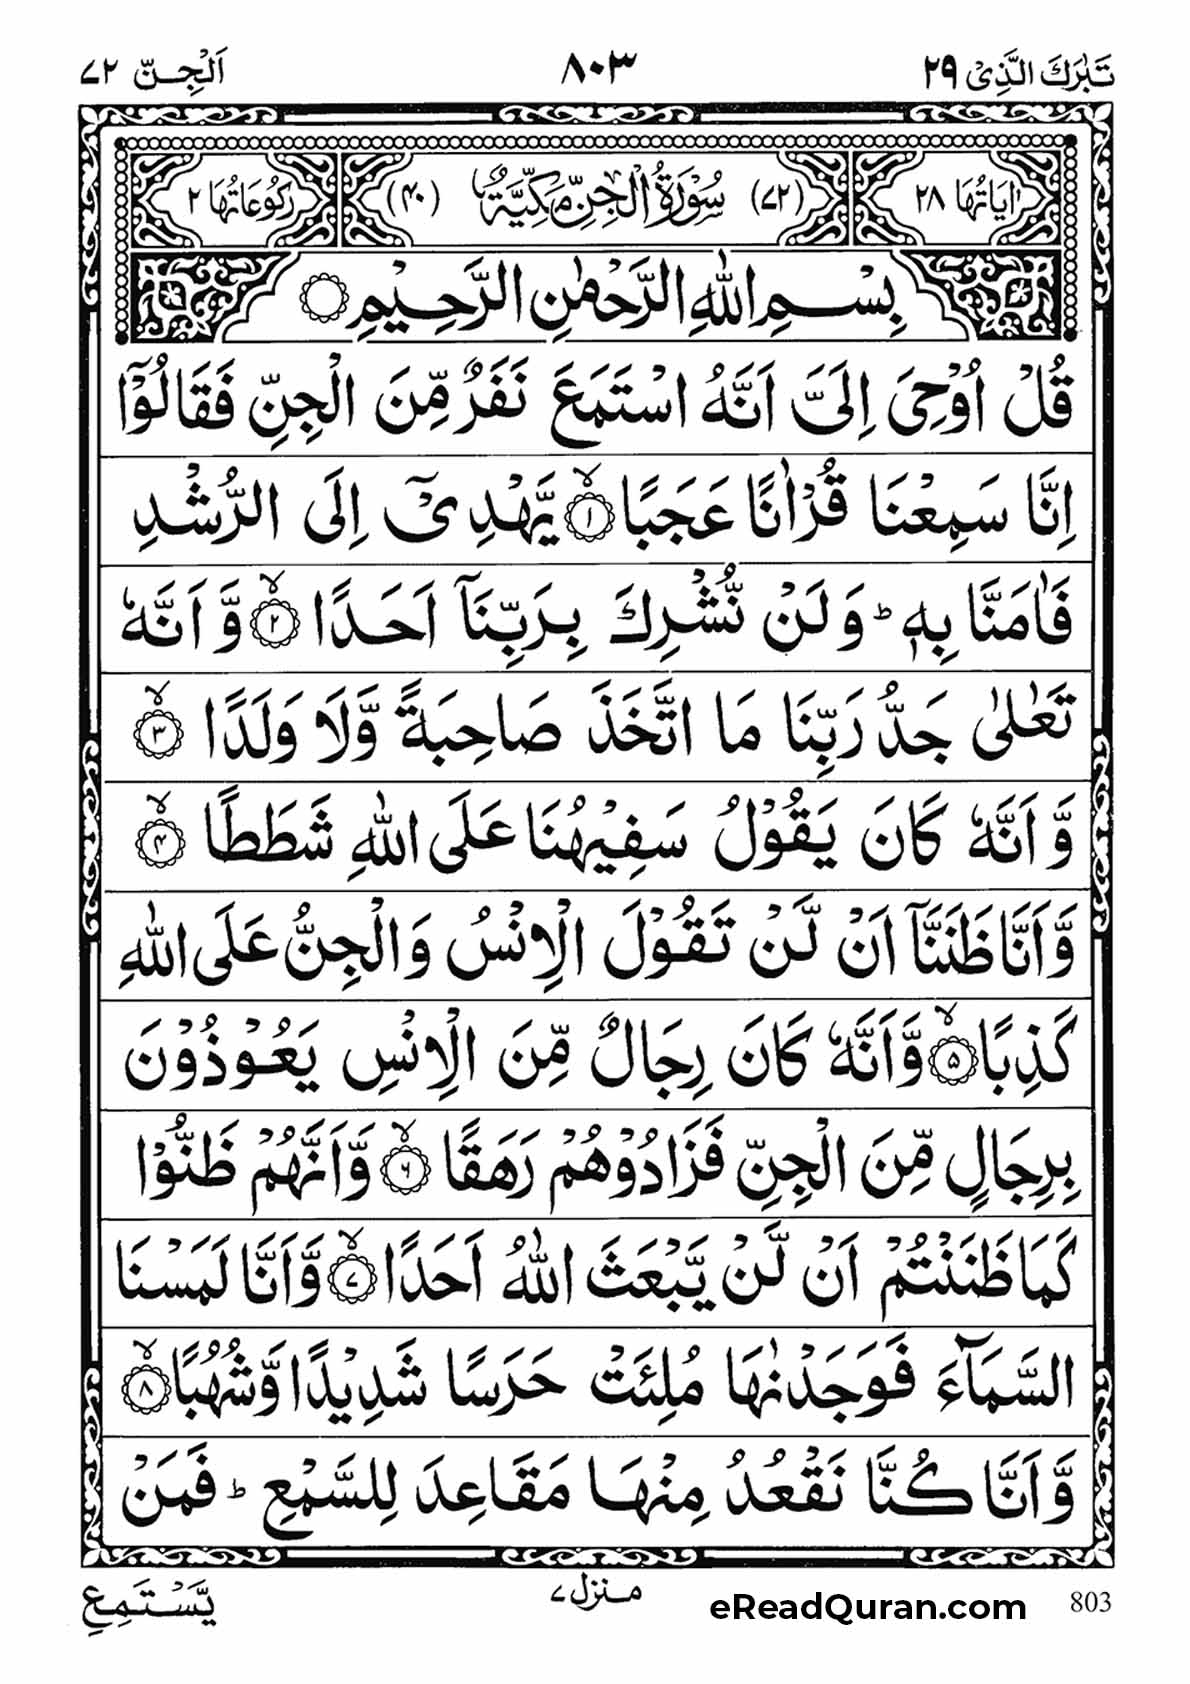 تَبٰرَكَ الَّذِیْ ۲۹ ۸۰۳ اَلْجِنّ ۷۲
اٰیَاتُهَا ۲۸ (۷۲) سُوْرَةُ الْجِنِّ مَكِّیَّةٌ (۴۰) رُكُوْعَاتُهَا ۲
بِسْمِ اللهِ الرَّحْمٰنِ الرَّحِیْمِ
قُلْ اُوْحِیَ اِلَیَّ اَنَّهُ اسْتَمَعَ نَفَرٌ مِّنَ الْجِنِّ فَقَالُوْۤا
اِنَّا سَمِعْنَا قُرْاٰنًا عَجَبًا ۙ﴿۱﴾ یَّهْدِیْۤ اِلَی الرُّشْدِ
فَاٰمَنَّا بِهٖ ؕ وَلَنْ نُّشْرِكَ بِرَبِّنَاۤ اَحَدًا ۙ﴿۲﴾ وَّاَنَّهٗ
تَعٰلٰی جَدُّ رَبِّنَا مَا اتَّخَذَ صَاحِبَةً وَّلَا وَلَدًا ۙ﴿۳﴾
وَّاَنَّهٗ كَانَ یَقُوْلُ سَفِیْهُنَا عَلَی اللهِ شَطَطًا ۙ﴿۴﴾
وَّاَنَّا ظَنَنَّاۤ اَنْ لَّنْ تَقُوْلَ الْاِنْسُ وَالْجِنُّ عَلَی اللهِ
كَذِبًا ۙ﴿۵﴾ وَّاَنَّهٗ كَانَ رِجَالٌ مِّنَ الْاِنْسِ یَعُوْذُوْنَ
بِرِجَالٍ مِّنَ الْجِنِّ فَزَادُوْهُمْ رَهَقًا ۙ﴿۶﴾ وَّاَنَّهُمْ ظَنُّوْا
كَمَا ظَنَنْتُمْ اَنْ لَّنْ یَّبْعَثَ اللهُ اَحَدًا ۙ﴿۷﴾ وَّاَنَّا لَمَسْنَا
السَّمَآءَ فَوَجَدْنٰهَا مُلِئَتْ حَرَسًا شَدِیْدًا وَّشُهُبًا ۙ﴿۸﴾
وَّاَنَّا كُنَّا نَقْعُدُ مِنْهَا مَقَاعِدَ لِلسَّمْعِ ؕ فَمَنْ
یَّسْتَمِعِ منزل ۷ eReadQuran.com 803